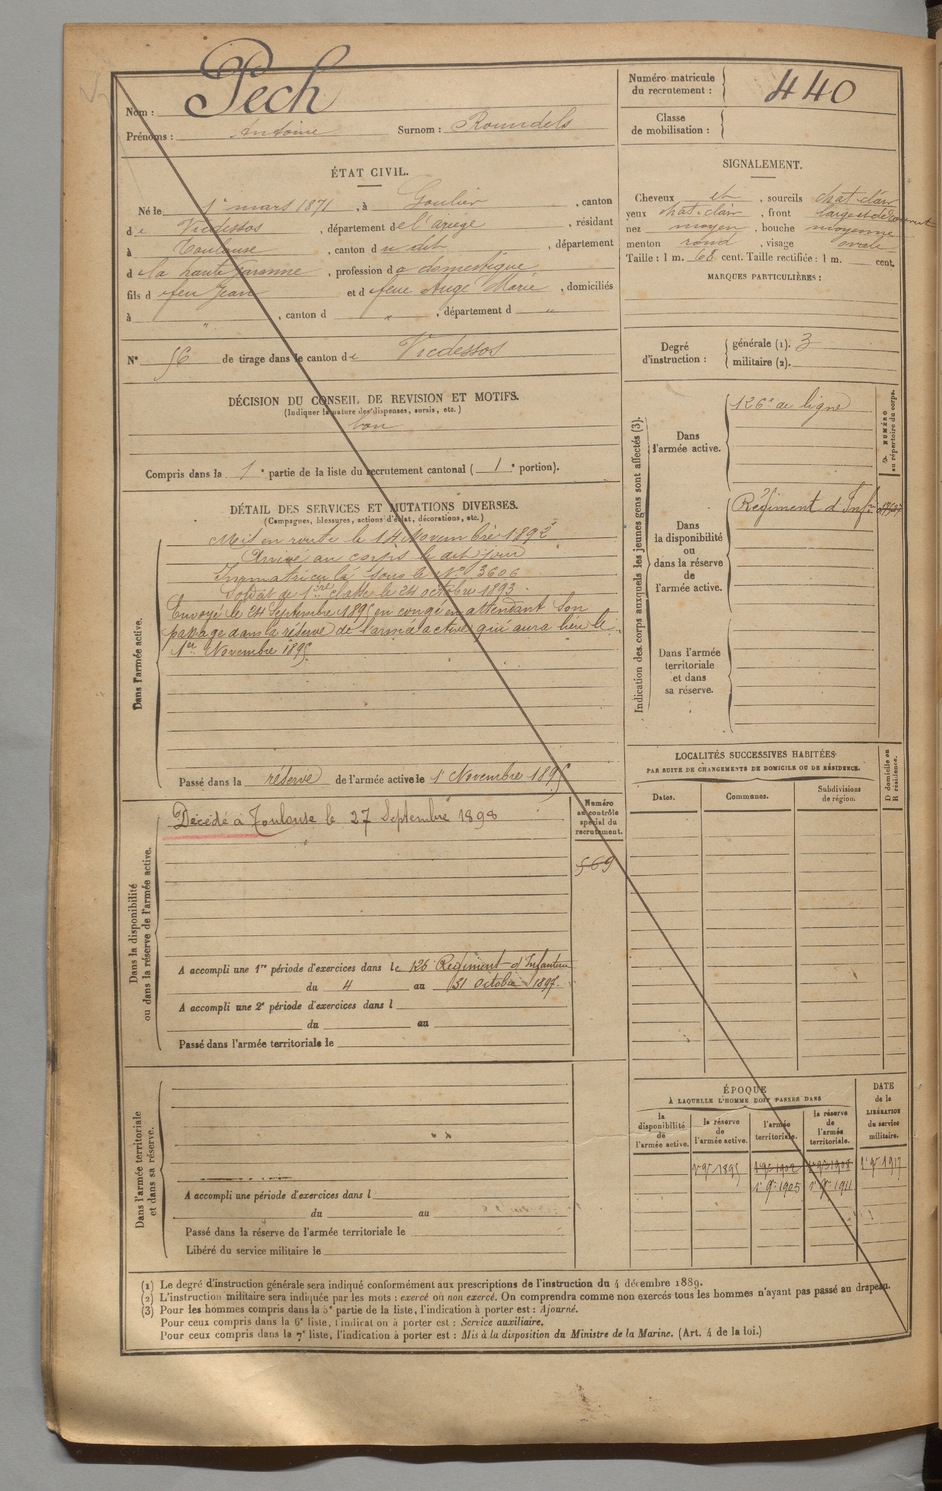 Nom : Pech
Prénoms : Antoine Surnom : Roumdels
Numéro matricule du recrutement : 440
Classe de mobilisation :
ÉTAT CIVIL.
Né le 1er mars 1871, à Goulier, canton
de Vicdessos, département de l'ariège, résidant
à Toulouse, canton du dit, département
d la haute Garonne, profession de domestique,
fils d feu Jean et d feue Ange Marie, domiciliés
à " , canton d " , département d "
N° 56 de tirage dans le canton de Vicdessos
SIGNALEMENT.
Cheveux et , sourcils chat. clair
yeux chat. clair , front large et découvert
nez moyen , bouche moyenne
menton rond , visage ovale
Taille : 1 m. 68 cent. Taille rectifiée : 1 m. cent.
MARQUES PARTICULIÈRES :
Degré d'instruction : générale (1). 3
militaire (2).
DÉCISION DU CONSEIL DE REVISION ET MOTIFS.
(Indiquer la nature des dispenses, sursis, etc.)
bon
Compris dans la 1e partie de la liste du recrutement cantonal ( 1e portion).
DÉTAIL DES SERVICES ET MUTATIONS DIVERSES.
(Campagnes, blessures, actions d'éclat, décorations, etc.)
Dans l'armée active.
Mis en route le 14 Novembre 1892
Arrivé au corps le dit jour
Immatriculé sous le N° 3606
Soldat de 1ère classe le 24 octobre 1893
Envoyé le 24 Septembre 1895 en congé en attendant son
passage dans la réserve de l'armée active qui aura lieu le
1er Novembre 1895.
Passé dans la réserve de l'armée active le 1 Novembre 1895
Indication des corps auxquels les jeunes gens sont affectés (3).
NUMÉRO au répertoire du corps.
Dans l'armée active. 126e de ligne
Dans la disponibilité ou dans la réserve de l'armée active. Régiment d'Infie
Dans l'armée territoriale et dans sa réserve.
LOCALITÉS SUCCESSIVES HABITÉES
PAR SUITE DE CHANGEMENTS DE DOMICILE OU DE RÉSIDENCE.
Dates. Communes. Subdivisions de région. D domicile ou R résidence.
Dans la disponibilité ou dans la réserve de l'armée active.
Décédé à Toulouse le 27 Septembre 1898
Numéro au contrôle spécial du recrutement.
569
A accompli une 1re période d'exercices dans le 126 Régiment d'Infanterie
du 4 au 31 Octobre 1897.
A accompli une 2e période d'exercices dans l
du au
Passé dans l'armée territoriale le
Dans l'armée territoriale et dans sa réserve.
A accompli une période d'exercices dans l
du au
Passé dans la réserve de l'armée territoriale le
Libéré du service militaire le
ÉPOQUE
À LAQUELLE L'HOMME DOIT PASSER DANS
la disponibilité de l'armée active. la réserve de l'armée active. l'armée territoriale. la réserve de l'armée territoriale. DATE de la LIBÉRATION du service militaire.
1er 9bre 1895 1er 9bre 1902 1er 9bre 1908 1er 9bre 1917
1er 9bre 1905 1er 9bre 1911
(1) Le degré d'instruction générale sera indiqué conformément aux prescriptions de l'instruction du 4 décembre 1889.
(2) L'instruction militaire sera indiquée par les mots : exercé ou non exercé. On comprendra comme non exercés tous les hommes n'ayant pas passé au drapeau.
(3) Pour les hommes compris dans la 5e partie de la liste, l'indication à porter est : Ajourné.
Pour ceux compris dans la 6e liste, l'indication à porter est : Service auxiliaire.
Pour ceux compris dans la 7e liste, l'indication à porter est : Mis à la disposition du Ministre de la Marine. (Art. 4 de la loi.)